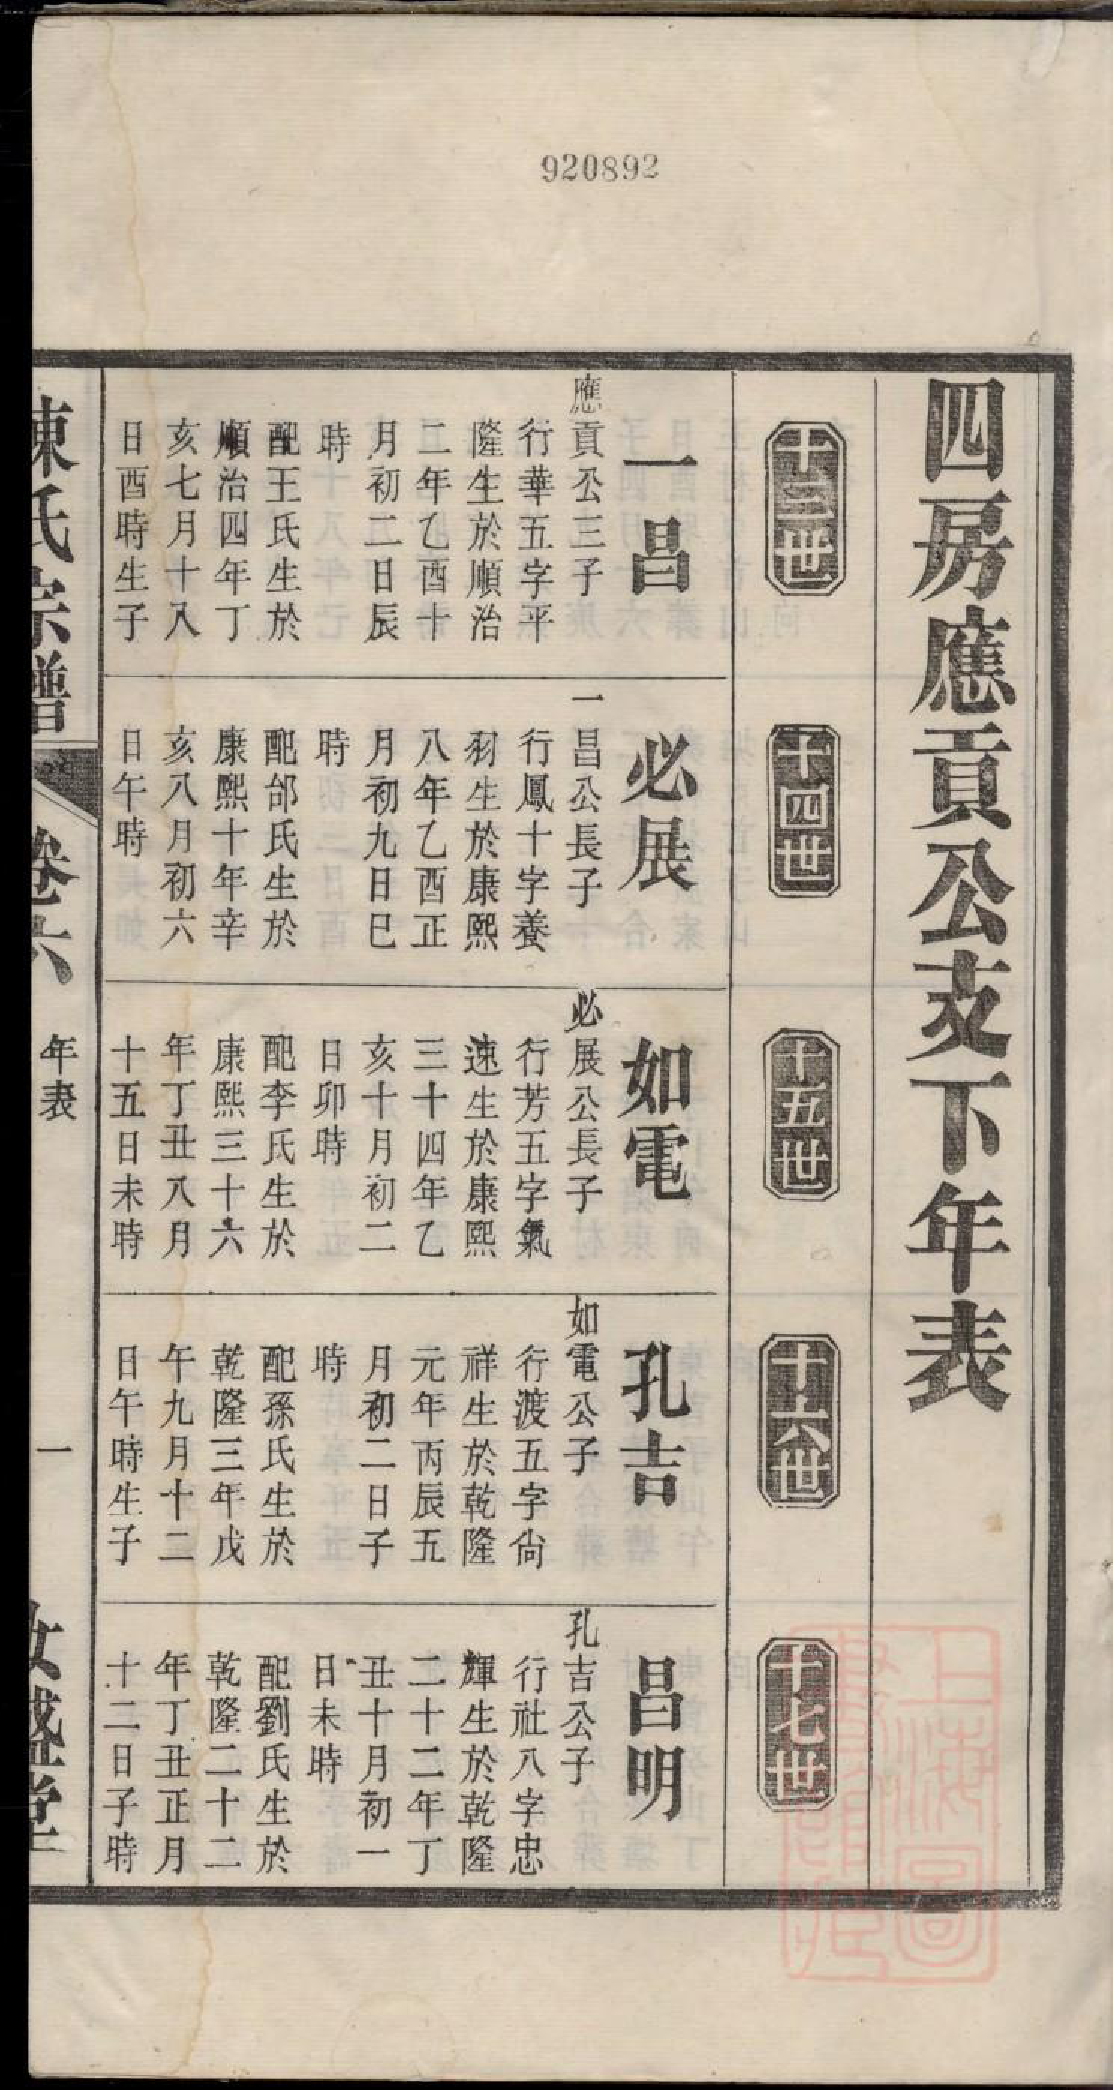 920892
四房應貢公支下年表
十三世
十四世
十五世
十六世
十七世
一昌
應貢公三子
行華五字平
隆生於順治
二年乙酉十
月初二日辰
時
配王氏生於
順治四年丁
亥七月十八
日酉時生子
必展
一昌公長子
行鳳十字養
羽生於康熙
八年乙酉正
月初九日巳
時
配邰氏生於
康熙十年辛
亥八月初六
日午時
如電
必展公長子
行芳五字氣
速生於康熙
三十四年乙
亥十月初二
日卯時
配李氏生於
康熙三十六
年丁丑八月
十五日未時
孔吉
如電公子
行渡五字尙
祥生於乾隆
元年丙辰五
月初二日子
時
配孫氏生於
乾隆三年戊
午九月十二
日午時生子
昌明
孔吉公子
行社八字忠
輝生於乾隆
二十二年丁
丑十月初一
日未時
配劉氏生於
乾隆二十二
年丁丑正月
十二日子時
陳氏宗譜
卷六
年表
一
上海圖
書館藏